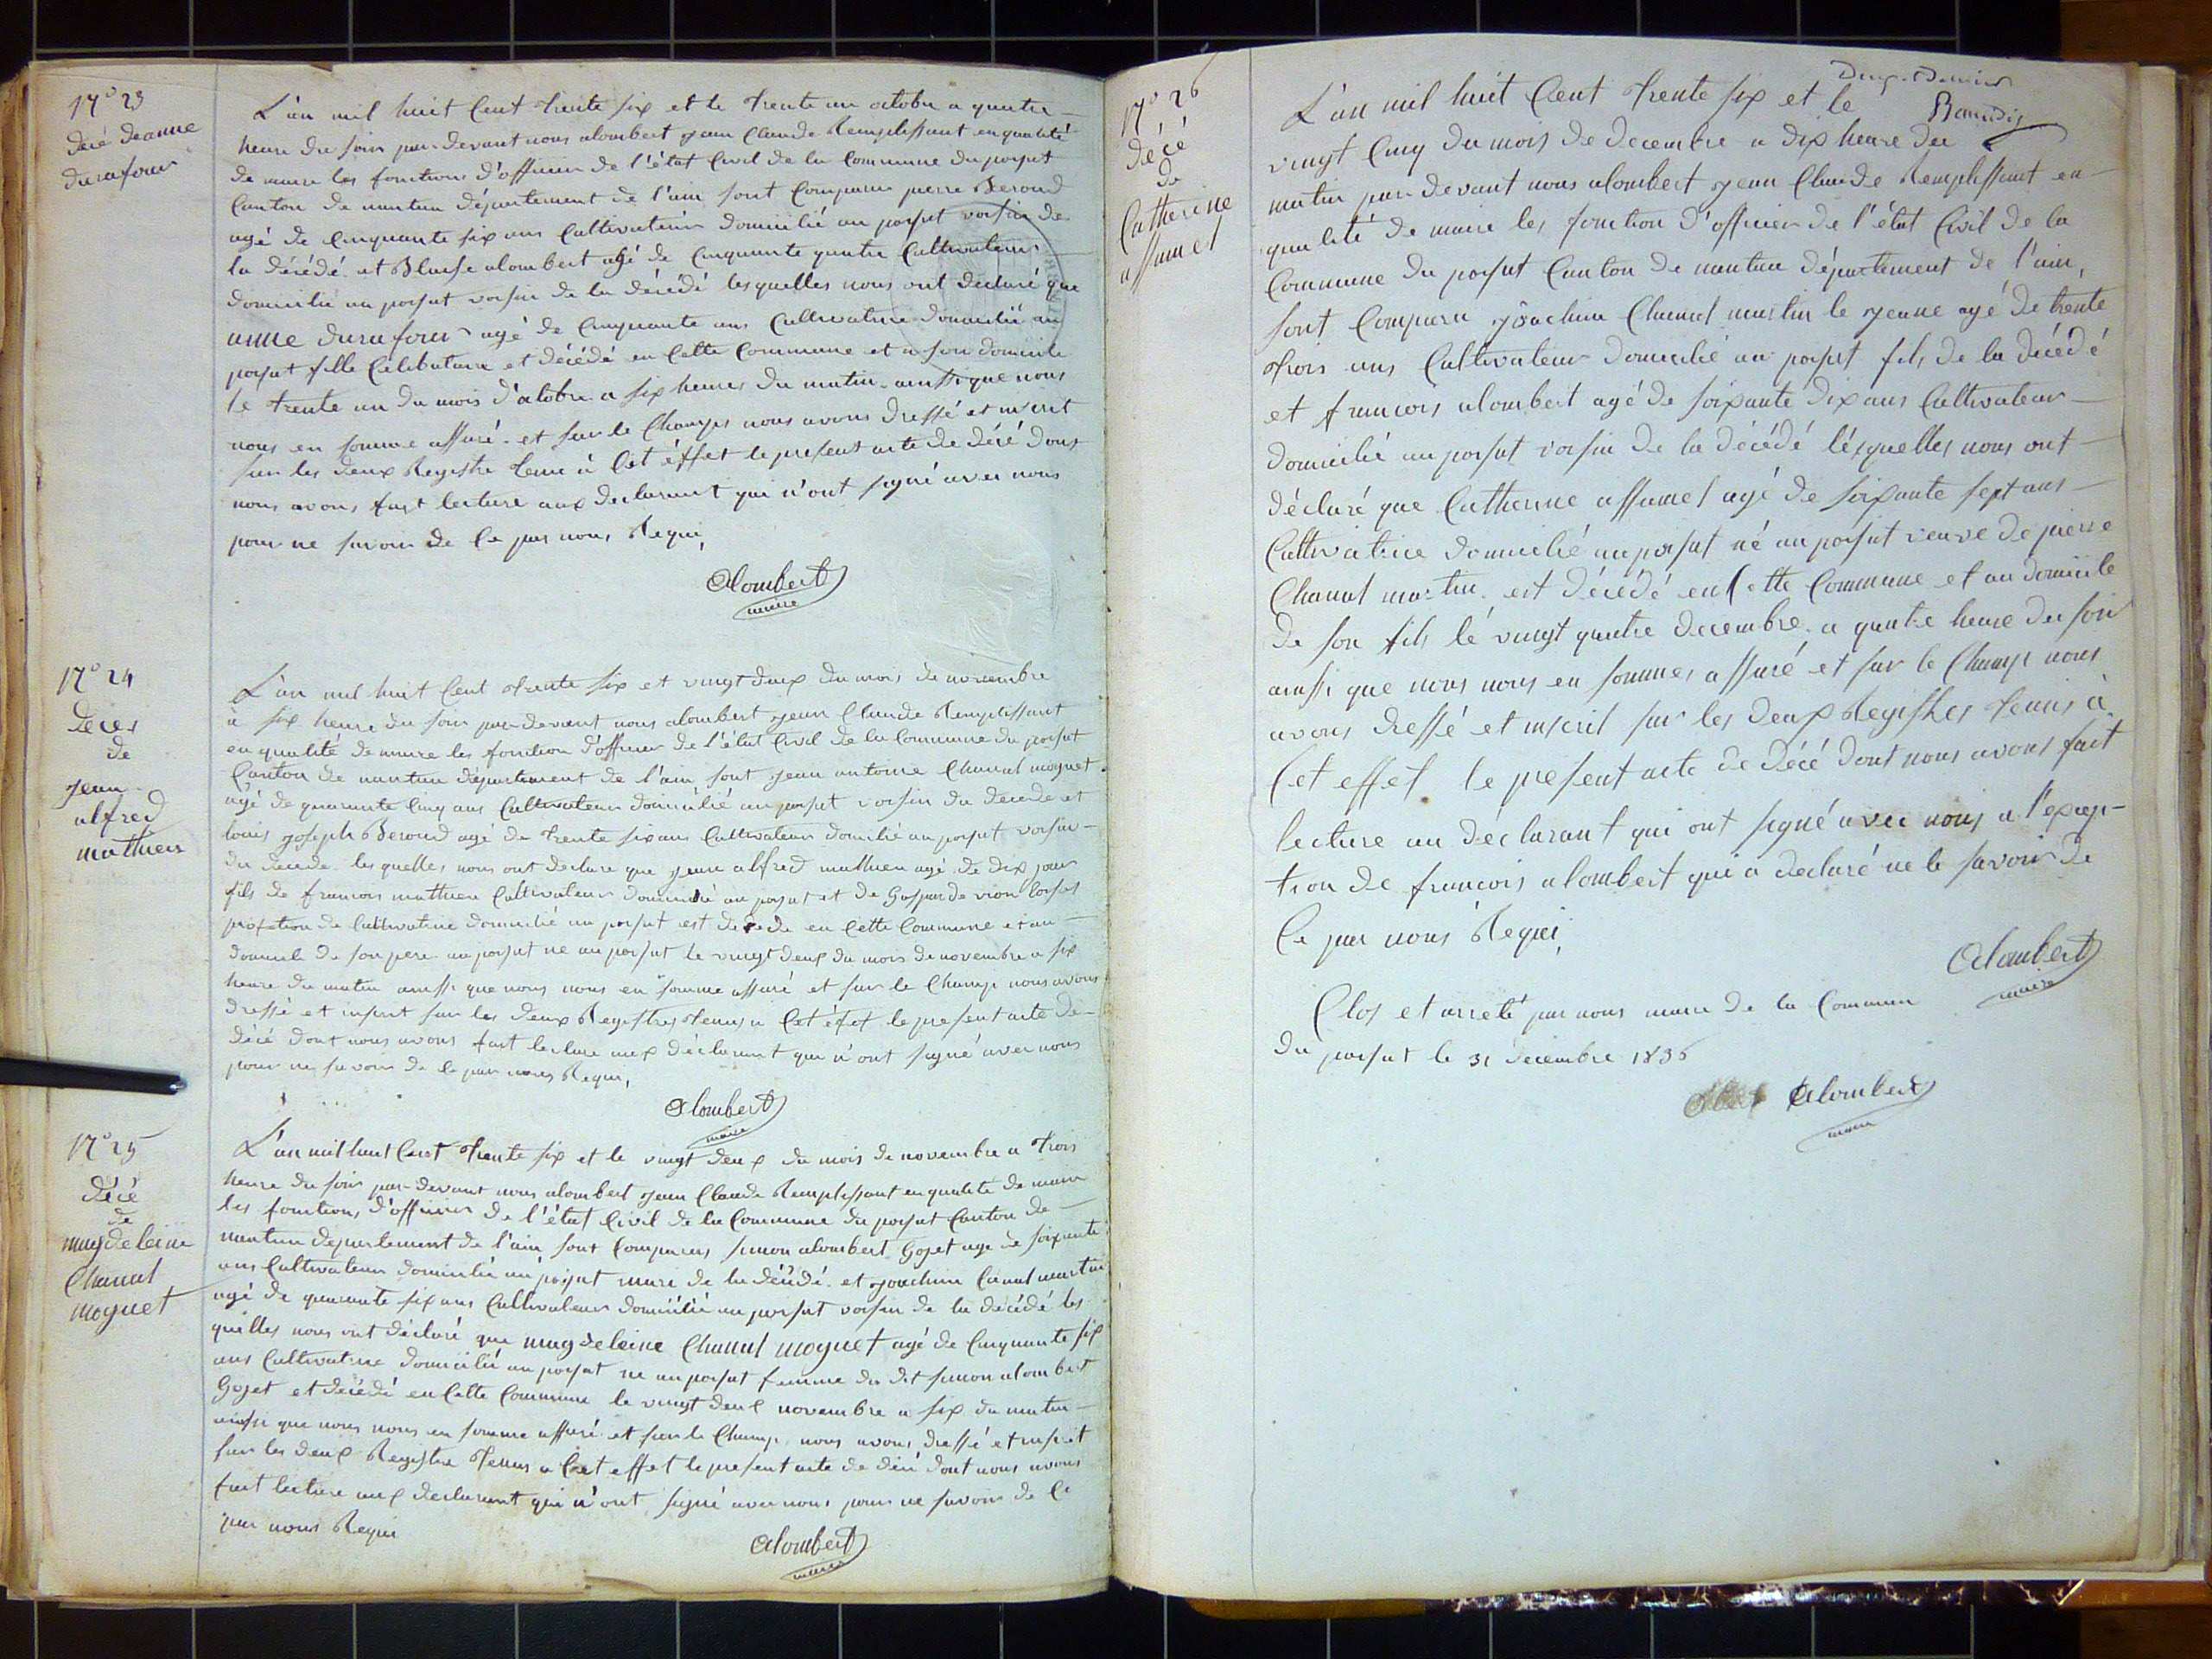 N° 23
décé deanne
durafour
L'an mil huit Cent trente six et le trente un octobre a quatre
heure du soir par-devant nous alombert jean Claude Remplissant en qualité
de maire les fonctions d'officier de l'état Civil de la Commune du poisat
Canton de nantua département de l'ain sont Comparu pierre Beroud
agé de Cinquante six ans Cultivateur domicilié au poisat voisin de
la décédé et Blaise alombert agé de Cinquante quatre Cultivateur
domicilié au poisat voisin de la décédé lesquelles nous ont déclaré que
anne durafour agé de Cinquante ans Cultivatrice domicilié au
poisat fille Celibataire et décédé en Cette Commune et a son domicile
le trente un du mois d'octobre a six heures du matin ainssi que nous
nous en somme assuré et sur le Champs nous avons dressé et inscrit
sur les deux Registre tenu à Cet éffet le present acte de décé dont
nous avons fait lecture aux declarant qui n'ont signé avec nous
pour ne savoir de Ce par nous Requi,
Alombert
maire
N° 24
Deces
de
jean
alfred
mathieu
L'an mil huit Cent trente six et vingt deux du mois de novembre
à six heure du soir par-devant nous alombert jean Claude Remplissant
en qualité de maire les fonction d'officier de l'état Civil de la Commune du poisat
Canton de nantua département de l'ain sont jean antoine Chanal moguet
agé de quarante Cinq ans Cultivateur domicilié au poisat voisin du decede et
louis joseph Beroud agé de trente six ans Cultivateur domicilié au poisat voisin
du decede lesquelles nous ont declare que jean alfred mathieu agé de dix jour
fils de francois mathieu Cultivateur domicilié au poisat et de Gasparde
profetion de Cultivatrice domicilié au poisat est décédé en Cette Commune et au
domicile de son pere au poisat ne au poisat le vingt deux du mois de novembre a six
heure du matin ainssi que nous nous en somme assuré et sur le Champ nous avons
dressé et inscrit sur les deux Registres tenus a Cet éfet le present acte de
décé dont nous avons fait lecture aux déclarant qui n'ont signé avec nous
pour ne savoir de Ce par nous Requi,
Alombert
maire
N° 25
décé
de
magdeleine
Chanal
moguet
L'an mil huit Cent trente six et le vingt deux du mois de novembre a trois
heure du soir par-devant nous alombert jean Claude Remplissant en qualité de maire
les fonctions d'officier de l'état Civil de la Commune du poisat Canton de
nantua département de l'ain sont Comparus simon alombert Gojet age de soixante
ans Cultivateur domicilié au poisat mari de la décédé et joachim Canal martin
agé de quarante six ans Cultivateur domicilié au poisat voisin de la décédé les
quelles nous ont déclaré que magdeleine Chanal moguet agé de Cinquante six
ans Cultivatrice domicilié au poisat ne au poisat femme du dit simon alombert
Gojet et décédé en Cette Commune le vingt deux novembre a six du matin
ainssi que nous nous en somme assuré et sur le Champ nous avons dressé et inscrit
sur les deux Registre tenus a Cet effet le présent acte de décé dont nous avons
fait lecture aux declarant qui n'ont signé avec nous pour ne savoir de Ce
par nous Requi
Alombert
maire
N° 26
décé
de
Catherine
assumel
L'an mil huit Cent trente six et le
vingt Cinq du mois de decembre a dix heure du
matin par-devant nous alombert jean Claude Remplissant en
qualité de maire les fonction d'officier de l'état Civil de la
Commune du poisat Canton de nantua département de l'ain,
sont Comparu joachim Chanal martin le jeune agé de trente
trois ans Cultivateur domicilié au poisat fils de la décédé
et francois alombert agé de soixante dix ans Cultivateur
domicilié au poisat voisin de la décédé lésquelles nous ont
déclaré que Catherine assumel agé de soixante sept ans
Cultivatrice domicilié au poisat né au poisat veuve de pierre
Chanal martin est décédé en Cette Commune et au domicile
de son fils le vingt quatre decembre a quatre heure du soir
ainssi que nous nous en sommes assuré et sur le Champ nous
avons dressé et inscrit sur les deux Registres tenus à
Cet effet le present acte de décé dont nous avons fait
lecture au déclarant qui ont signé avec nous a l'excep-
tion de francois alombert qui a declaré ne le savoir de
Ce par nous Requi,
Alombert
maire
Clos et arreté par nous maire de la Commune
du poisat le 31 decembre 1836
Alombert
maire